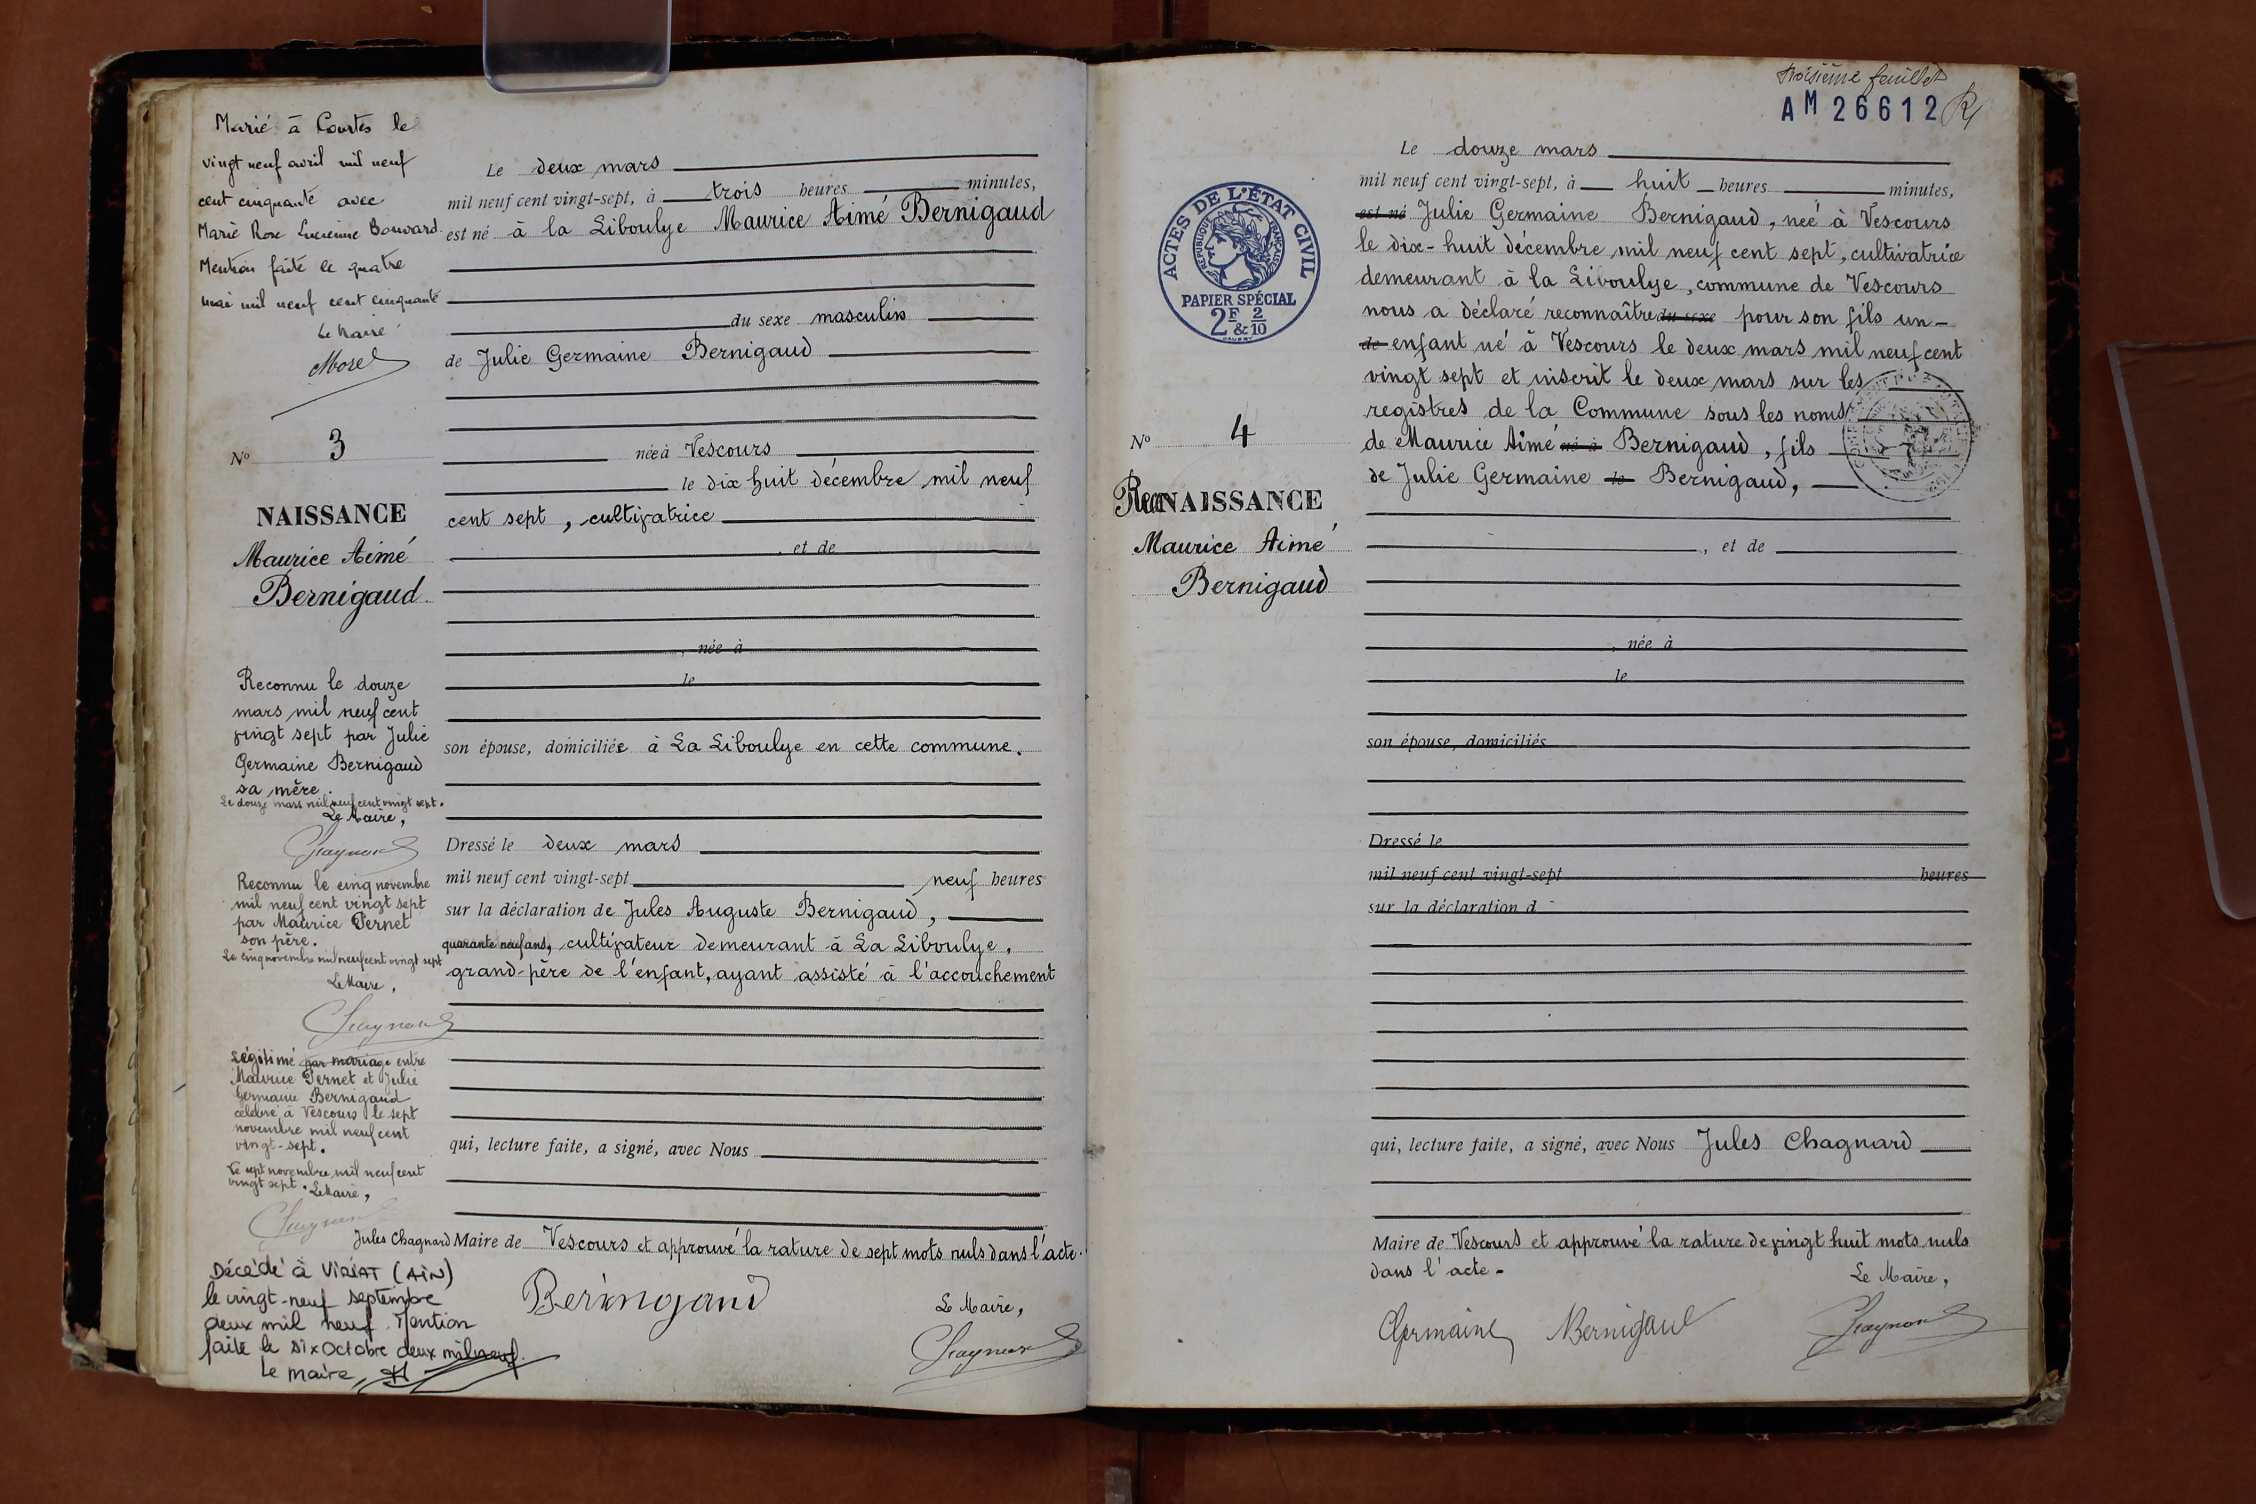 Marié à Courtes le
vingt neuf avril mil neuf
cent cinquante avec
Marie Rose Lucienne Bouvard.
Mention faite le quatre
mai mil neuf cent cinquante
Le Maire
Morel
N° 3
NAISSANCE
Maurice Aimé
Bernigaud
Reconnu le douze
mars mil neuf cent
vingt sept par Julie
Germaine Bernigaud
sa mère.
Le douze mars mil neuf cent vingt sept.
Le Maire,
Chagnard
Reconnu le cinq novembre
mil neuf cent vingt sept
par Maurice Pernet
son père.
Le cinq novembre mil neuf cent vingt sept
Le Maire,
Chagnard
Légitimé par mariage entre
Maurice Pernet et Julie
Germaine Bernigaud
célébré à Vescours le sept
novembre mil neuf cent
vingt-sept.
Le sept novembre mil neuf cent
vingt sept. Le Maire,
Chagnard
Décédé à VIRIAT (AIN)
le vingt-neuf septembre
deux mil neuf. Mention
faite le six octobre deux mil neuf.
Le maire
Le deux mars
mil neuf cent vingt-sept, à trois heures minutes,
est né à la Liboulye Maurice Aimé Bernigaud
du sexe masculin
de Julie Germaine Bernigaud
née à Vescours
le dix huit décembre mil neuf
cent sept, cultivatrice
, et de
, née à
le
son épouse, domiciliée à La Liboulye en cette commune.
Dressé le deux mars
mil neuf cent vingt-sept neuf heures
sur la déclaration de Jules Auguste Bernigaud,
quarante neuf ans, cultivateur demeurant à La Liboulye,
grand-père de l'enfant, ayant assisté à l'accouchement
qui, lecture faite, a signé, avec Nous
Jules Chagnard Maire de Vescours et approuvé la rature de sept mots nuls dans l'acte.
Bernigaud
Le Maire,
Chagnard
troisième feuillet
AM 26612
ACTES DE L'ÉTAT CIVIL
RÉPUBLIQUE FRANÇAISE
PAPIER SPÉCIAL
2F & 2/10
N° 4
RecoNAISSANCE
Maurice Aimé
Bernigaud
Le douze mars
mil neuf cent vingt-sept, à huit heures minutes,
est né Julie Germaine Bernigaud, née à Vescours
le dix-huit décembre mil neuf cent sept, cultivatrice
demeurant à la Liboulye, commune de Vescours
nous a déclaré reconnaître du sexe pour son fils un
de enfant né à Vescours le deux mars mil neuf cent
vingt sept et inscrit le deux mars sur les
registres de la Commune sous les noms
de Maurice Aimé né à Bernigaud, fils
de Julie Germaine le Bernigaud,
, et de
, née à
le
son épouse, domiciliés
Dressé le
mil neuf cent vingt-sept heures
sur la déclaration d
qui, lecture faite, a signé, avec Nous Jules Chagnard
Maire de Vescours et approuvé la rature de vingt huit mots nuls
dans l'acte.
Le Maire,
Germaine Bernigaud
Chagnard